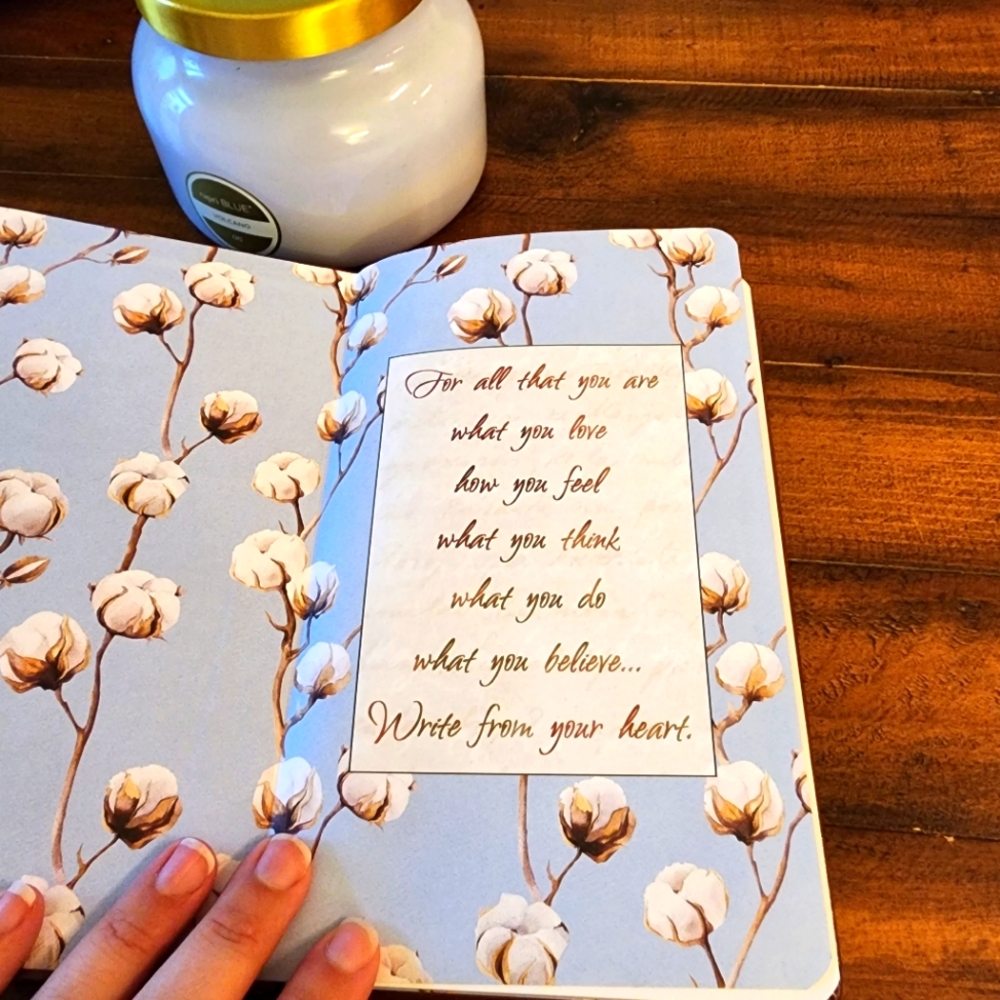 capri BLUE
VOLCANO
For all that you are
what you love
how you feel
what you think
what you do
what you believe...
Write from your heart.